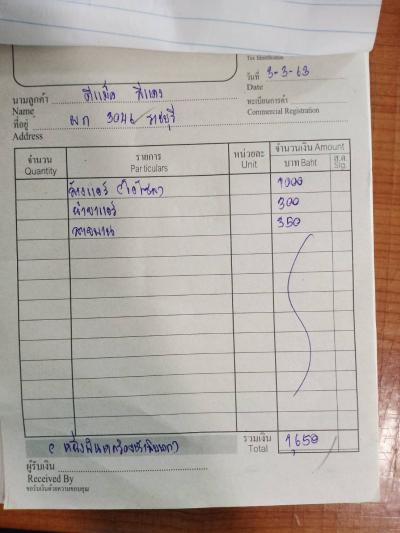 Tax Identification
วันที่ 3-3-63
Date
นามลูกค้า ดีแม็ก สีแดง
Name
ทะเบียนการค้า
Commercial Registration
ที่อยู่ ผก 3046 ราชบุรี
Address
จำนวน รายการ หน่วยละ จำนวนเงิน Amount
Quantity Particulars Unit บาท Baht ส.ต. Stg.
ล้างแอร์ 1000
น้ำยาแอร์ 300
สายพาน 350
รวมเงิน 1,650
Total
ผู้รับเงิน
Received By
ขอรับเงินด้วยความขอบคุณ